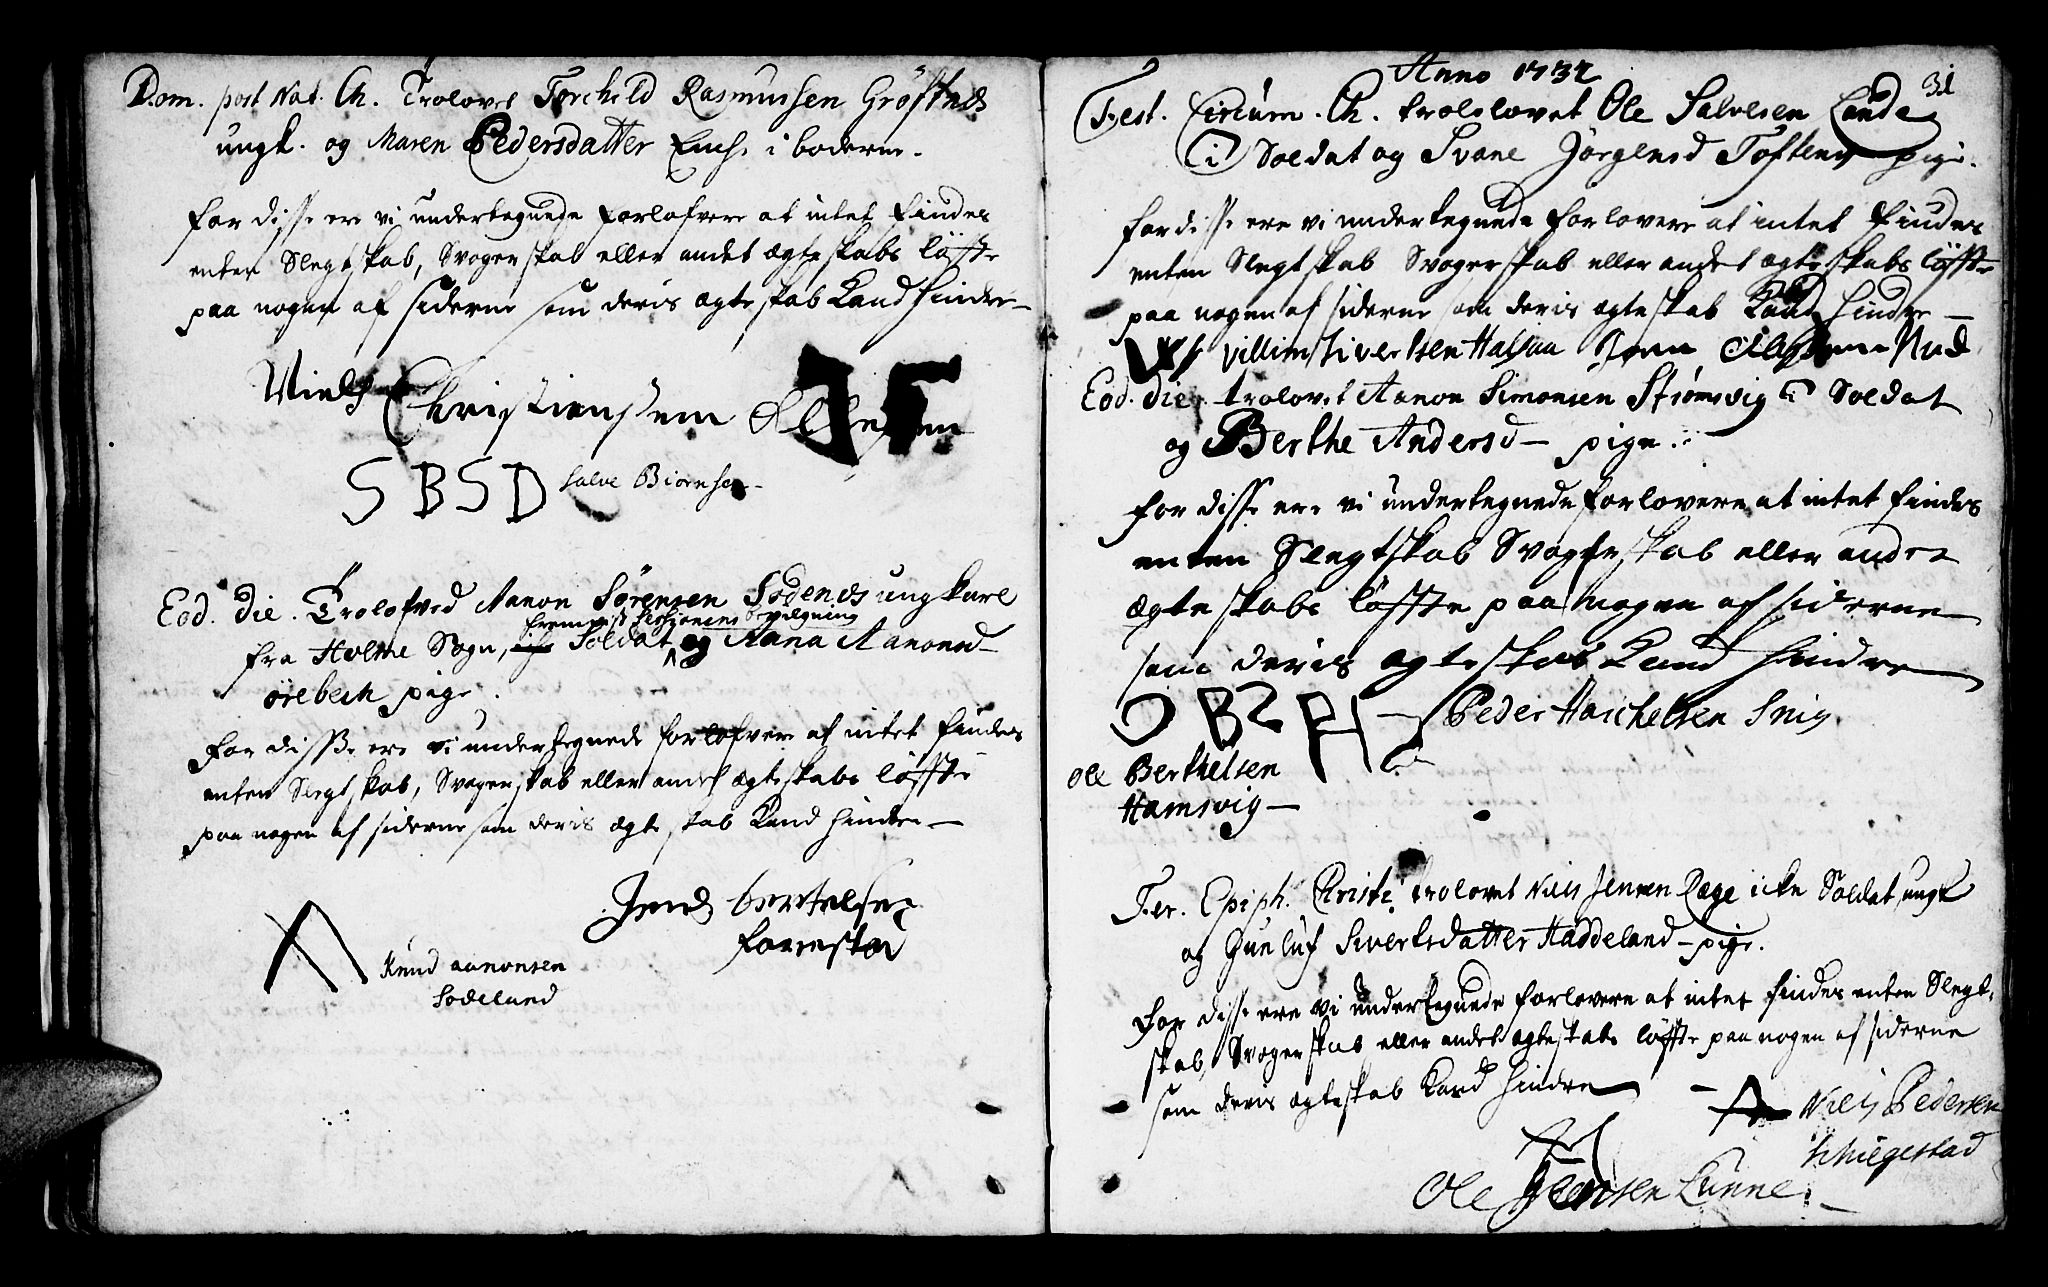 Dom. post Nat. Ch. Trolovet Torchild Rasmussen Grøftnes
ungk. og Maren Pedersdatter Enche i boderne.
for disse ere vi undertegnede forlofvere at intet findes
enten Slegtskab, Svogerskab eller andet ægteskabs løffte
paa nogen af siderne som deris ægteskab kand hindre
Niels Christiensen Ellefsen
SBSD Salve Biørnsen
Eod. Die. Trolofved Aanon Sørensen Sodenes ungkarl
Sessionens
fra Holme Sogn, Soldat og Aana Aanonsd
ørebech pige.
for disse ere vi undertegnede forlofvere at intet findes
enten Slegtskab, Svogerskab eller andet ægteskabs løffte
paa nogen af siderne som deris ægteskab kand hindre
Jens bertelsen
forrestad
Knud aanonsen
Sodeland
Anno 1732
31
Fest. Circum. Ch. trolovet Ole Salvesen Lande
Soldat og Svane Jørgensd Toftenes pige.
for disse ere vi undertegnede forlovere at intet findes
enten Slegtskab Svogerskab eller andet ægteskabs løffte
paa nogen af siderne som deris ægteskab kand hindre
Villim Sivertsen Halsaa
Eod. die. trolovet Aanon Simonsen Strømsvig Soldat
og Berthe Andersd pige.
for disse ere vi undertegnede forlovere at intet findes
enten Slegtskab Svogerskab eller andet
ægteskabs løffte paa nogen af siderne
som deris ægteskab kand hindre
OBS PH Peder Haschelsen Snig
Ole Berthelsen
Hamsvig
Fer. Epiph. Christi trolovet Niels Jensen Rege icke Soldat ungk
og Gunluf Siverksdatter Haddeland pige.
for disse ere vi undertegnede forlovere at intet findes enten Slegt-
skab, Svogerskab eller andet ægteskabs løffte paa nogen af siderne
som deris ægteskab kand hindre
Niels Pedersen
Schiegestad
Ole Jensen Lunne